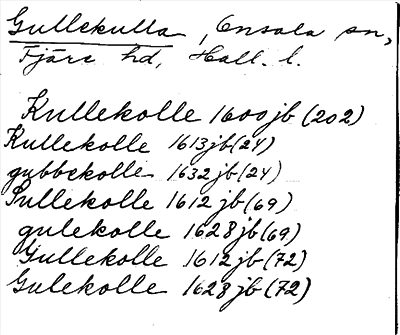 Gullekulla, Onsala sn,
Fjäre hd, Hall. l.
Kullekolle 1600 jb (202)
Kullekolle 1613 jb (24)
gubbekolle 1632 jb (24)
Pullekolle 1612 jb (69)
gulekolle 1628 jb (69)
Gullekolle 1612 jb (72)
Gulekolle 1628 jb (72)